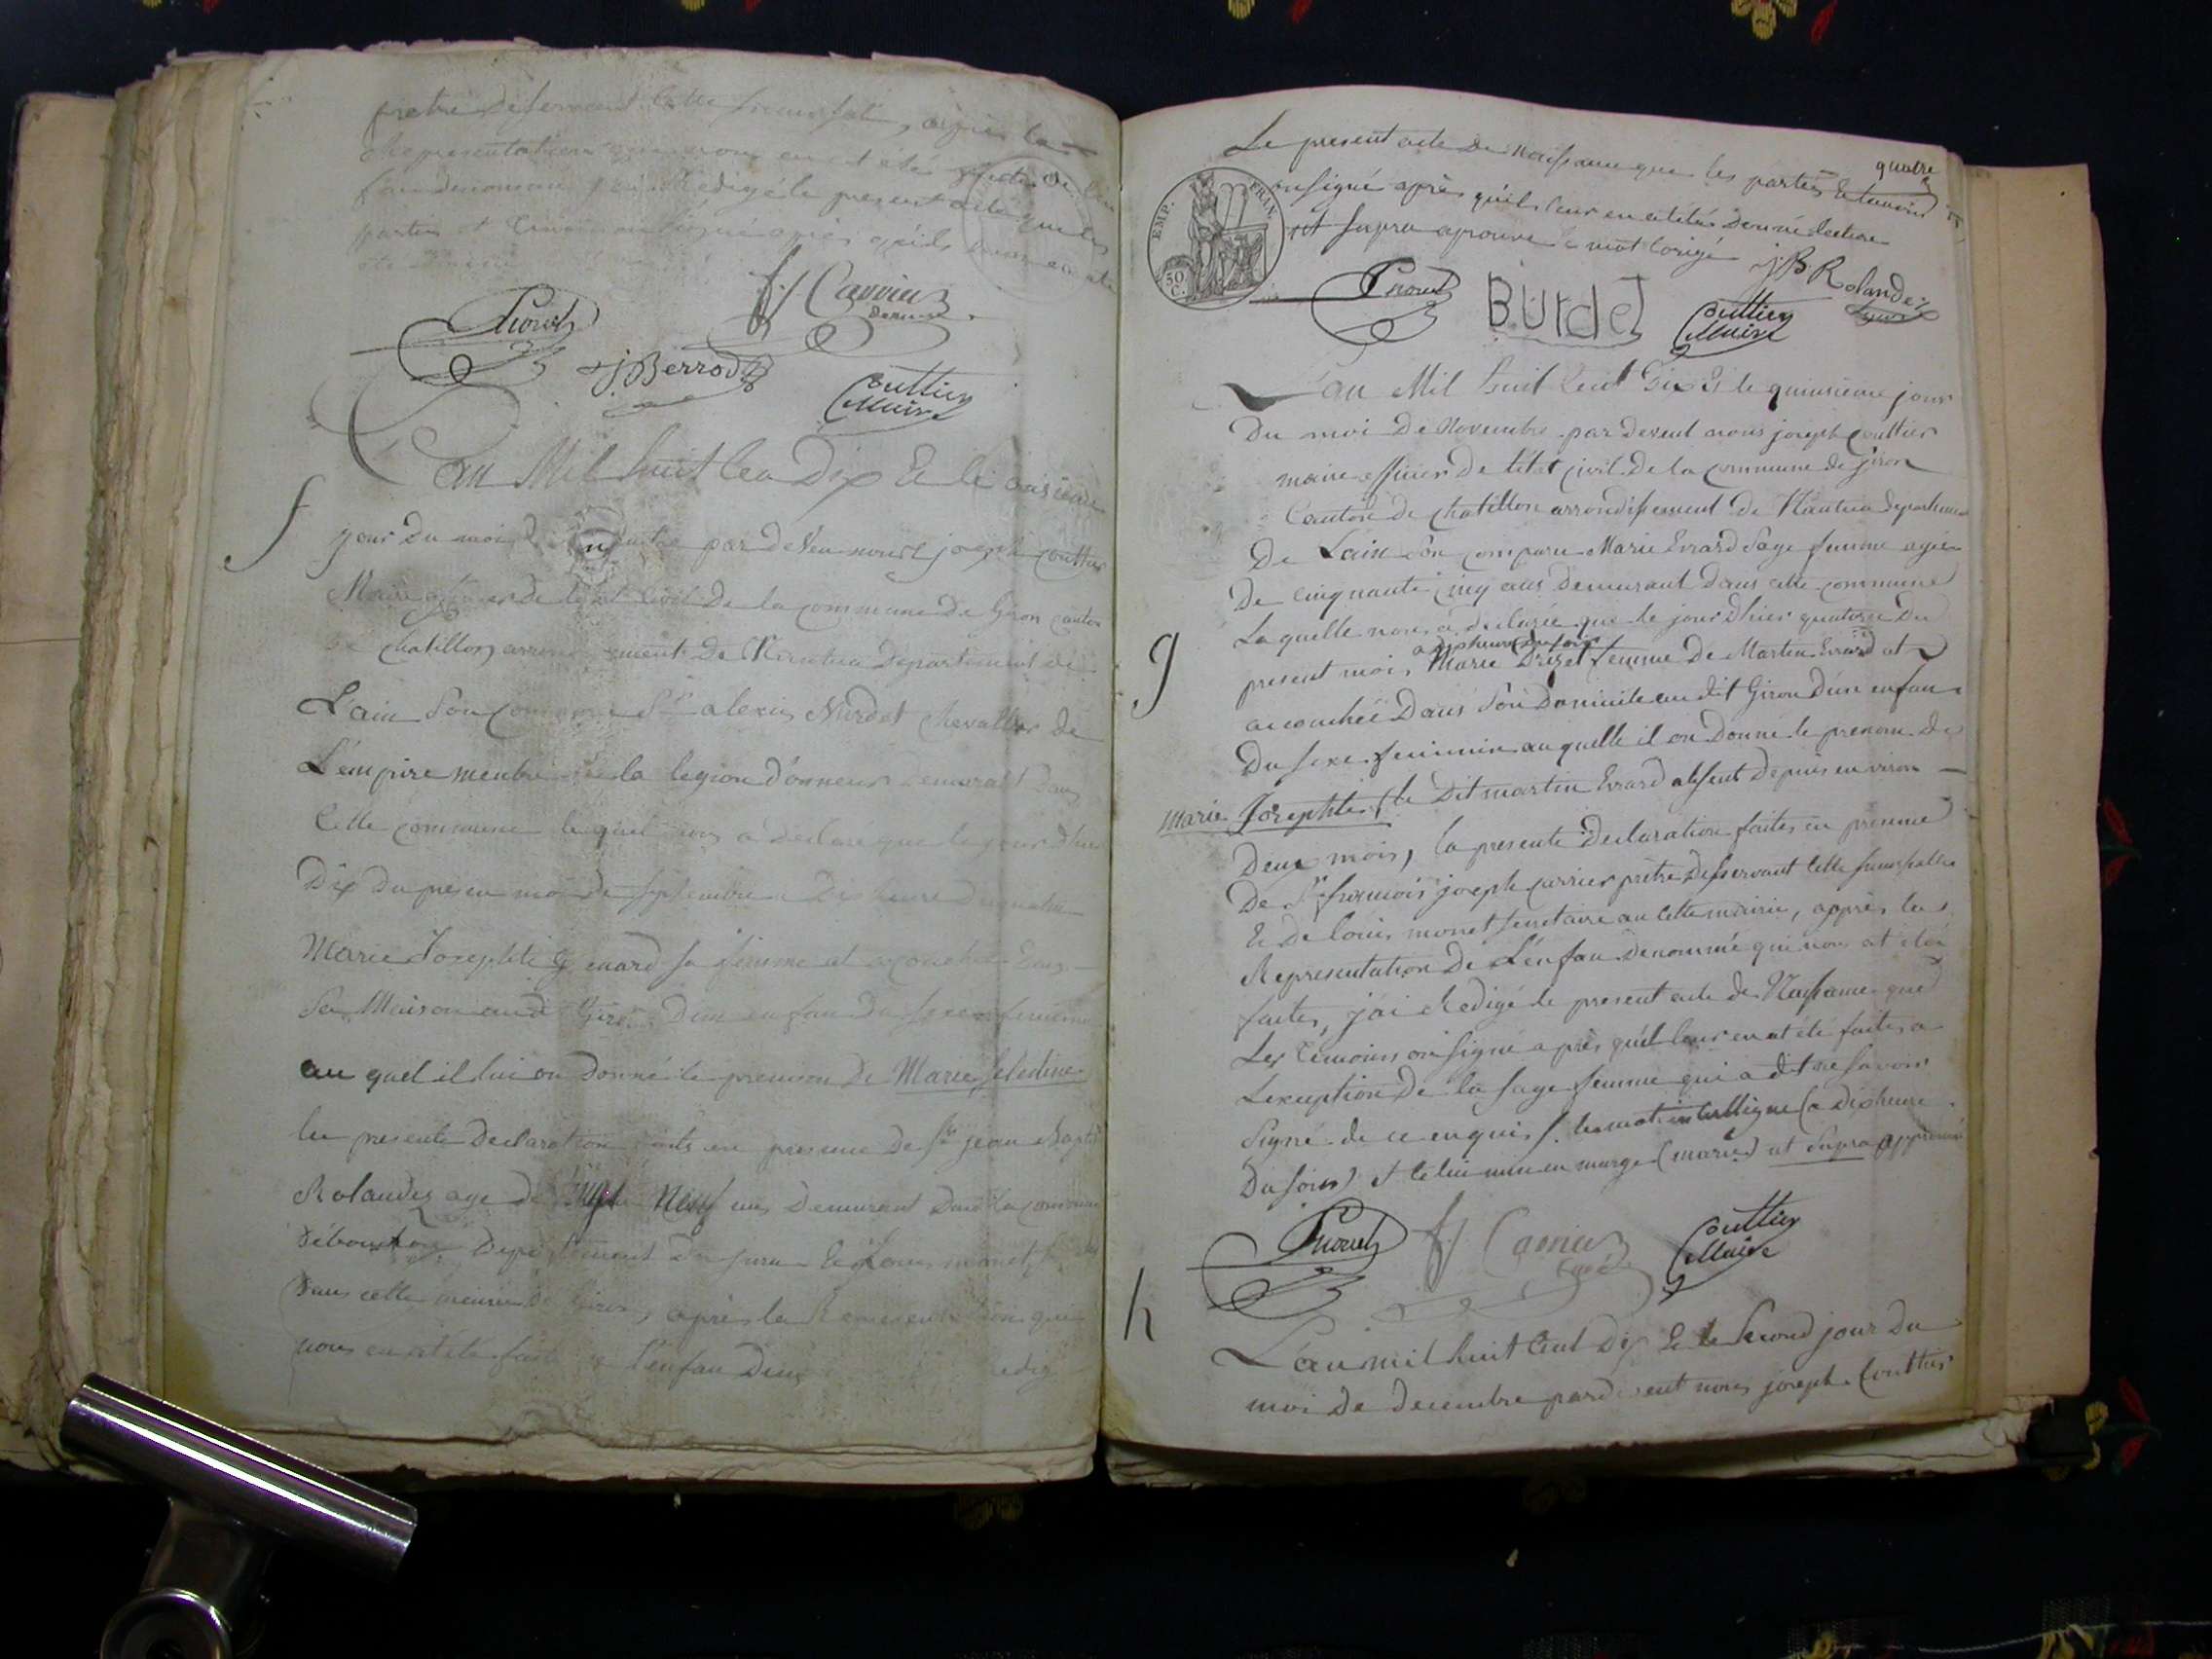 pretre desservant cette succursale, après la
Representation
rédigé le present acte que les
parties et temoins ont signé après qu'ils leur en ete
été
fj Carrier
Desser
Monet
j Berrod
Couttier
Maire
L'an Mil huit Cen Dix Et le onzieme
f
jour du moi de par deven nous joseph Couttier
Maire officier de l'etat Civil De la Commune De Giron Canton
de chatillon, arrondissement De Nantua Departement de
Lain Son Comparu Sr alexis Burdet Chevallier de
L'empire menbre de la legion d'onneur demeurant Dans
Cette commune lequel nous a declaré que le jour d'hier
Dix Du presen moi de Septembre a Dix heure du matin
Marie Josephte Evrard sa femme at acouchée Dans
Sa Maison audi Giron Dun enfan Du Sexe feminin
au quel il lui on Donné le prenom De Marie Celestine
la presente Declaration faite en presence de Sr jean Baptis
Rolandez age de Vingt Neuf ans Demeurant Dans la commune
Departement du jura Et Louis monet
Dans cette mairie de Giron, après la Representation qui
nous en at ete faite de l'enfan Denommé redigé
quatre
Le present acte De naissance que les parties Et temoins
on signé après qu'ils leur en at étés Donné lecture
ut supra aprouvé le mot corigé
EMP. FRAN.
50 C.
J. B. Rolandez
Monet
Burdet
Couttier
Maire
L'an Mil huit Cent Dix Et le quinzieme jour
Du moi De Novembre par devent nous joseph Couttier
maire officier De l'etat civil De la Commune de Giron
Canton de Chatillon arrondissement De Nantua departement
De Lain S'on comparu Marie Evrard Sage femme agée
De cinquante cinq ans Demeurant Dans cette commune
La quelle nous a declarée que le jour d'hier quatorze Du
a dix heure du soir
g
present moi, Marie Drizet femme De Martin Evrard at
accouchée Dans Son Domicile au dit Giron D'un enfan
Du sexe feminin au quelle il on Donné le prenom De
marie Josephte, le Dit martin Evrard absent Depuis environ
Deux mois, la presente Declaration faites en presence
De Sr francois joseph Carrier prêtre Desservant Cette succursalle
Et De louis monet secretaire au cette mairie, après la
Representation De L'enfan Denommé qui nous at étée
faites, j'ai Redigé le present acte de Naissance que
Les temoins on signé après qu'il leur en at été faites a
L'exception De la Sage femme qui a dit ne savoir
Signé de ce enquis f. le mot interlligne (a Dix heure
Du soir) et celui mis en marge (marie) ut supra approuvé
Monet
fj Carrier
Curé
Couttier
Maire
h
L'an mil huit Cent Dix Et le Second jour Du
moi De Decembre pardevent nous joseph Couttier